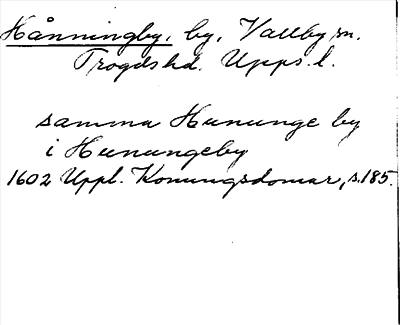 Hånningby, by, Vallby sn.
Trögds hd. Upps. l.
samma Hununge by
i Hunungeby
1602 Uppl. Konungsdomar, s. 185.